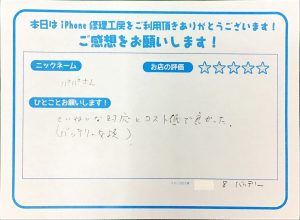 本日は iPhone 修理工房をご利用頂きありがとうございます！
ご感想をお願いします！
ニックネーム
パパさん
お店の評価
☆☆☆☆☆
ひとことお願いします！
ていねいな対応とコスト低で良かった。
(バッテリー交換)
8 バッテリー